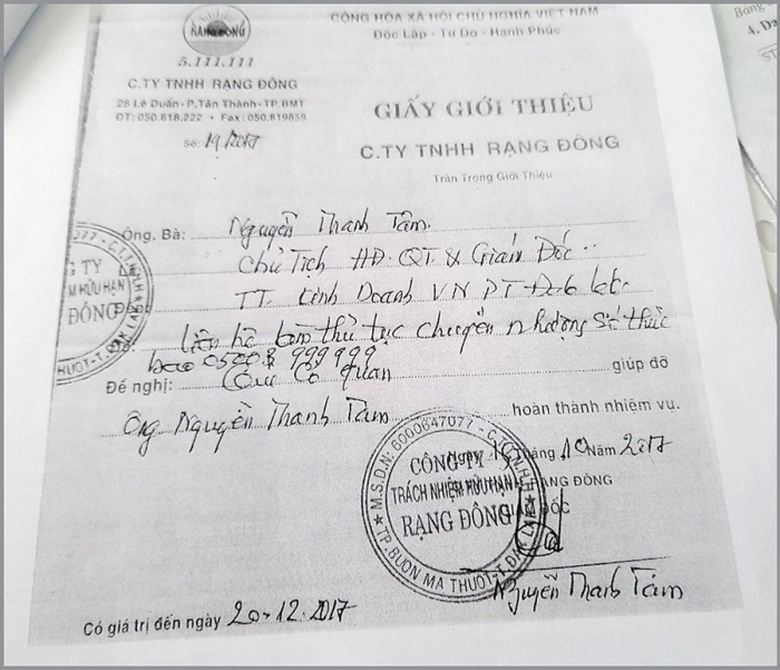 RẠNG ĐÔNG
5.111.111
C.TY TNHH RẠNG ĐÔNG
28 Lê Duẩn - P.Tân Thành - TP.BMT
ĐT: 050.818.222 • Fax: 050.819859
Số: 19/2017
CỘNG HÒA XÃ HỘI CHỦ NGHĨA VIỆT NAM
Độc Lập - Tự Do - Hạnh Phúc
GIẤY GIỚI THIỆU
C.TY TNHH RẠNG ĐÔNG
Trân Trọng Giới Thiệu
Ông, Bà: Nguyễn Thanh Tâm.
Chủ Tịch HĐ.QT & Giám Đốc
TT. Kinh Doanh VN PT Đăk Lăk
liên hệ làm thủ tục chuyển nhượng số thuê
bao 0500 8 999999
Đề nghị: Quí Cơ quan giúp đỡ
Ông Nguyễn Thanh Tâm hoàn thành nhiệm vụ.
Ngày 19 Tháng 10 Năm 2017
C.TY TNHH RẠNG ĐÔNG
GIÁM ĐỐC
M.S.D.N: 6000647077 - C.T.T.N.H.H
CÔNG TY
TRÁCH NHIỆM HỮU HẠN
RẠNG ĐÔNG
TP.BUÔN MA THUỘT-T.ĐAK LAK
Nguyễn Thanh Tâm
Có giá trị đến ngày 20-12.2017